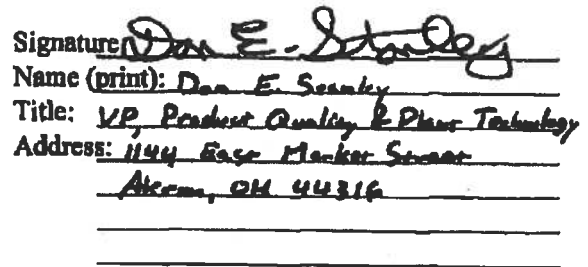 Signature Dan E. Stanley
Name (print): Dan E. Stanley
Title: VP, Product Quality & Plant Technology
Address: 1144 East Market Street
Akron, OH 44316